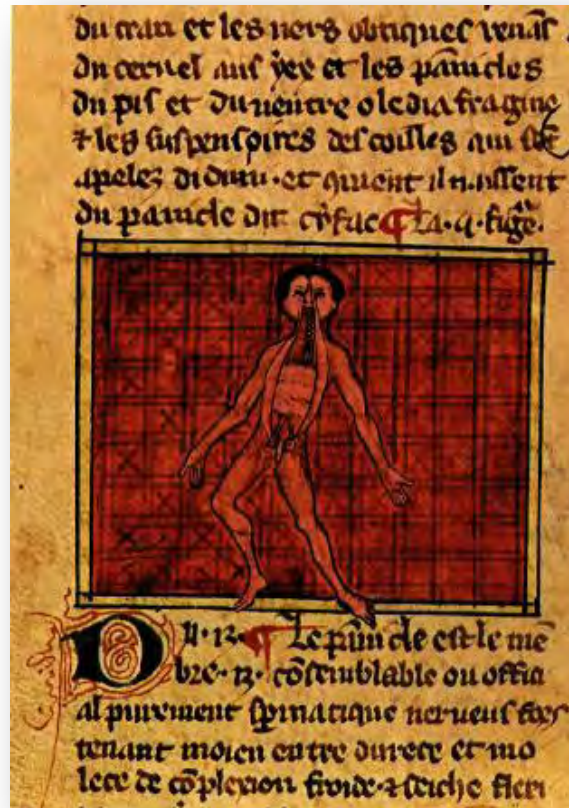 du cran et les ners obtiques venās
du cervel aus yex et les pānicles
du pis et du uentre o le diafragme
⁊ les suspensoires des coilles qui sōt
apelez didimi · et quient il naissent
du panicle dit cyfac ¶ La · q · figē ·
D u · 12 · ¶ Le pānicle est le mē
bre · 12 · cōsemblable ou offici
al purement spmatique nerueus
tenant moien entre durece et mo
lece de cōplexion froide · ⁊ seiche